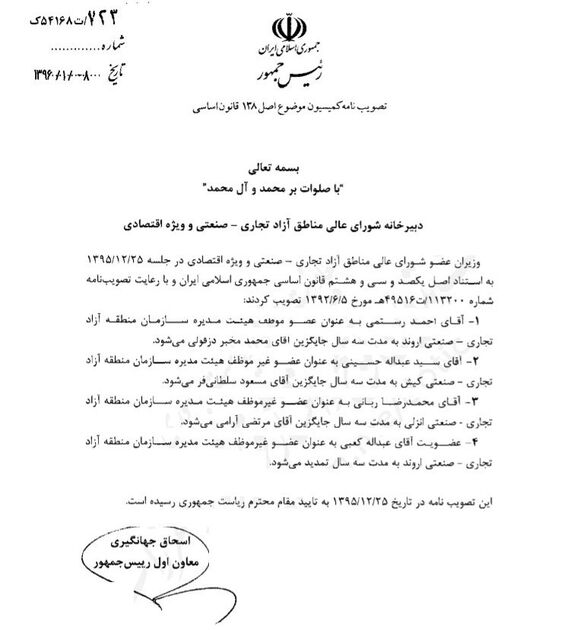 ۷۲۳/ت۵۴۱۶۸ک
شماره.............
۱۳۹۶/۰۱/۰۸ تاریخ
جمهوری اسلامی ایران
رئیس جمهور
تصویب نامه کمیسیون موضوع اصل ۱۳۸ قانون اساسی
بسمه تعالی
"با صلوات بر محمد و آل محمد"
دبیرخانه شورای عالی مناطق آزاد تجاری – صنعتی و ویژه اقتصادی
وزیران عضو شورای عالی مناطق آزاد تجاری – صنعتی و ویژه اقتصادی در جلسه ۱۳۹۵/۱۲/۲۵
به استناد اصل یکصد و سی و هشتم قانون اساسی جمهوری اسلامی ایران و با رعایت تصویب‌نامه
شماره ۱۱۳۲۰۰/ت۴۹۵۱۶هـ مورخ ۱۳۹۲/۶/۵ تصویب کردند:
۱– آقای احمد رستمی به عنوان عضو موظف هیئت مدیره سازمان منطقه آزاد
تجاری – صنعتی اروند به مدت سه سال جایگزین آقای محمد مخبر دزفولی می‌شود.
۲– آقای سید عبداله حسینی به عنوان عضو غیر موظف هیئت مدیره سازمان منطقه آزاد
تجاری – صنعتی کیش به مدت سه سال جایگزین آقای مسعود سلطانی‌فر می‌شود.
۳– آقای محمدرضا ربانی به عنوان عضو غیرموظف هیئت مدیره سازمان منطقه آزاد
تجاری - صنعتی انزلی به مدت سه سال جایگزین آقای مرتضی آرامی می‌شود.
۴– عضویت آقای عبداله کعبی به عنوان عضو غیرموظف هیئت مدیره سازمان منطقه آزاد
تجاری – صنعتی اروند به مدت سه سال تمدید می‌شود.
این تصویب نامه در تاریخ ۱۳۹۵/۱۲/۲۵ به تایید مقام محترم ریاست جمهوری رسیده است.
اسحاق جهانگیری
معاون اول رییس‌جمهور